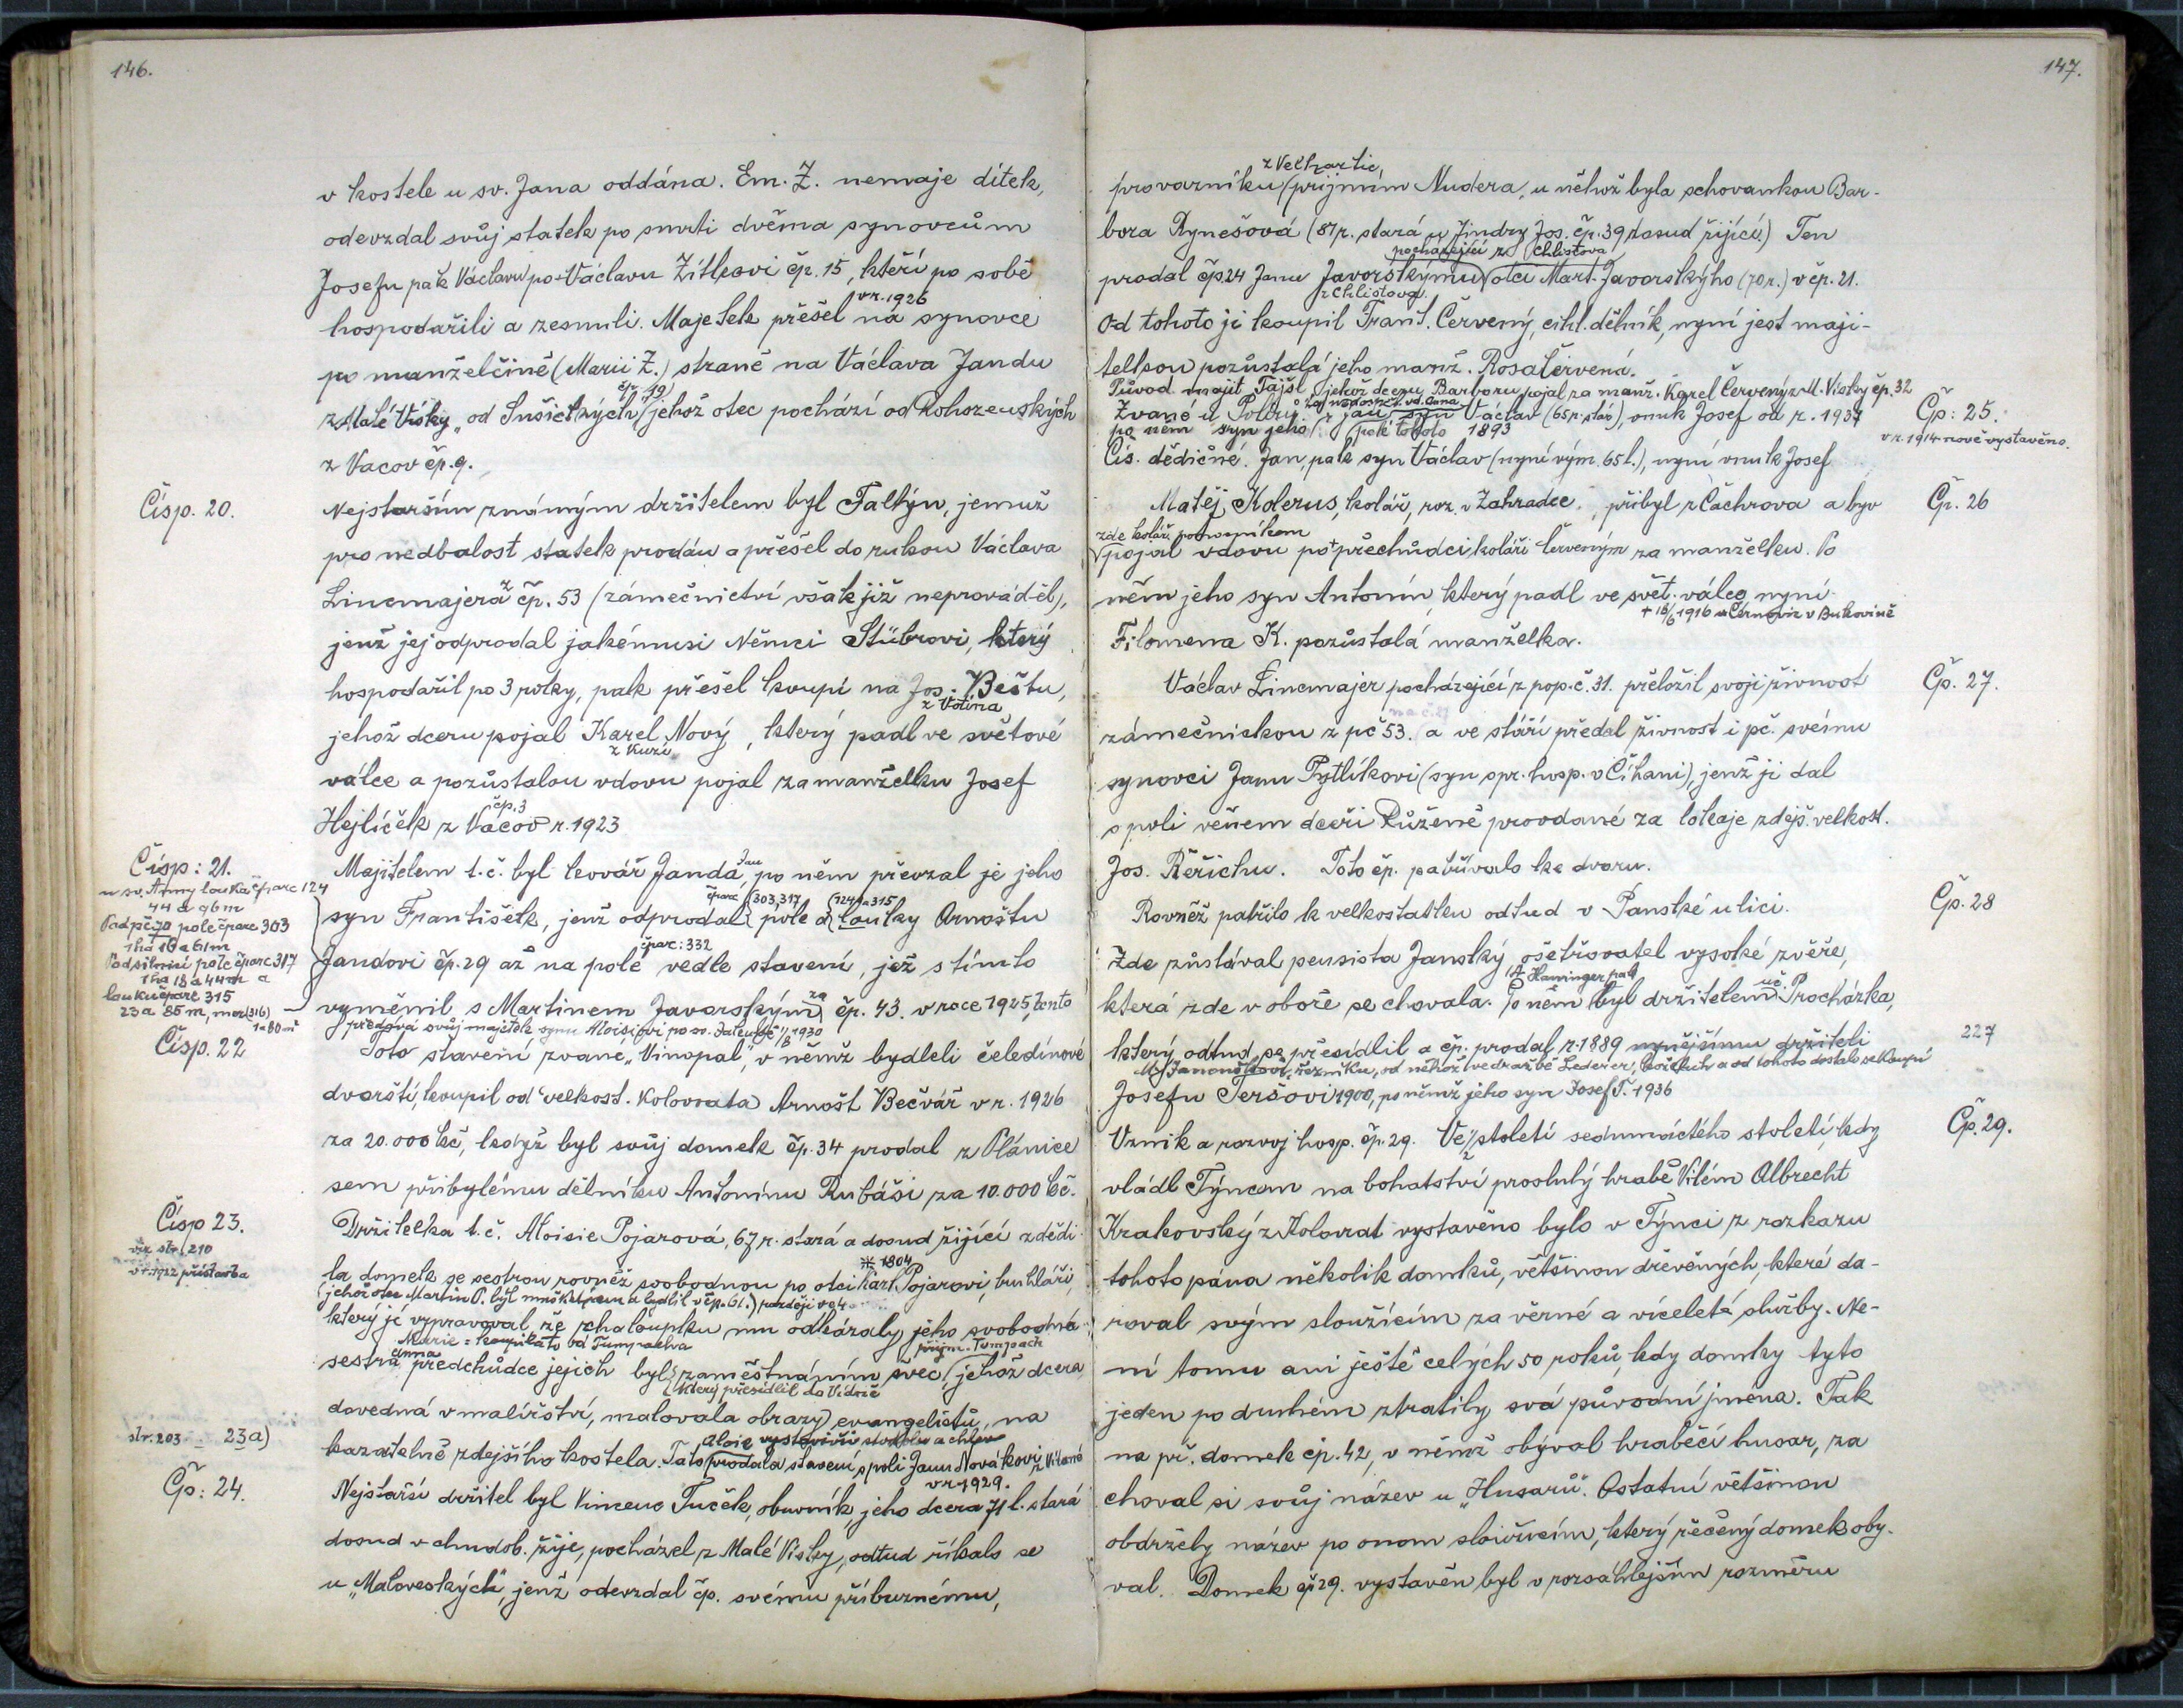 146.
v kostele u sv. Jana oddána. Em. Z. nemaje dítek,
odevzdal svůj statek po smrti dvěma synovcům
Josefu pak Václavu po Václavu Zítkovi čp. 15, kteří po sobě
v r. 1926
hospodařili a zesnuli. Majetek přešel na synovce
po manželčině (Marii Z.) straně na Václava Jandu
čp. 19
z Malé Vísky „od Sušických" jehož otec pochází od Rohozenských
z Vacov čp. 9.
Čísp. 20.
Nejstarším známým držitelem byl Faltýn, jemuž
pro nedbalost statek prodán a přešel do rukou Václava
Lincmajera z čp. 53 (zámečnictví však již neprováděl),
jenž jej odprodal jakémusi Němci Stübrovi, který
hospodařil po 3 roky, pak přešel koupí na Jos. Beštu,
z Votína
jehož dceru pojal Karel Nový, který padl ve světové
z Kuzí
válce a pozůstalou vdovu pojal za manželku Josef
čp. 3
Hejlíček z Vacov r. 1923
Čísp: 21.
u sv. Anny louka čparc 124
44 a 96 m
Pod pč 70 pole čparc 303
1 ha 16 a 61 m
Pod silnicí pole čparc 317
1 ha 18 a 44 m a
louku čparc 315
23 a 85 m, mez (316)
1 a 80 m²
Jan
Majitelem t. č. byl kovář Janda, po něm převzal je jeho
čparc (303,317 (124) a 315
syn František, jenž odprodal pole a louky Arnoštu
čparc: 332
Jandovi čp. 29 až na pole vedle stavení, jež s tímto
za
vyměnil s Martinem Javorským čp. 43. v roce 1925, tento
předává svůj majetek synu Aloisiovi po sv. Jakubě 1/8 1930
Čísp. 22
Toto stavení zvané „Vinopal", v němž bydleli čeledínové
dvorští, koupil od velkost. Kolovrata Arnošt Bečvář v r. 1926
za 20.000 kč, když byl svůj domek čp. 34 prodal z Plánice
sem přibylému dělníku Antonínu Rubáši za 10.000 kč.
Čísp 23.
viz str. 210
v r. 1922 přístavba
Držitelka t. č. Aloisie Pojarová, 67 r. stará a dosud žijící zdědi-
* 1804
la domek se sestrou rovněž svobodnou po otci Karl. Pojarovi, truhláři,
(jehož otec Martin P. byl mušketýrem a bydlil v čp. 61.) později ve 4
který jé vypravoval že chaloupku mu odkázaly jeho svobodná
Marie = koupila to od Tumpacha
příjm. Tumpach
sestra Anna předchůdce jejich byl zaměstnáním švec, jehož dcera
který přesídlil do Vídně
dovedná v malířství, malovala obrazy evangelistů, na
Alois vystavivši stodolu a chlév
kazatelně zdejšího kostela. Tato prodala stavení s poli Janu Novákovi z Vítaně
v r. 1929.
str. 203 - 23a)
Čp: 24.
Nejstarší držitel byl Vincenc Tuček, obuvník, jeho dcera 71 l. stará
dosud v chudob. žije, pocházel z Malé Vísky, odtud říkalo se
u „Maloveských", jenž odevzdal čp. svému příbuznému,
147.
z Velhartic,
provazníku (příjmím Nudera, u něhož byla schovankou Bar-
bora Rynešová (87 r. stará u Jindry Jos. čp. 39 dosud žijící.) Ten
pocházející z Chlistova
prodal čp. 24 Janu Javorskýmu otci Mart. Javorskýho (70 r.) v čp. 21.
z Chlistova.
Od tohoto ji koupil Frant. Červený, cihl. dělník, nyní jest maji-
telkou pozůstalá jeho manž. Rosa Červená.
Původ. majit. Tajšl, jehož dceru Barboru pojal za manž. Karel Červený z M. Vísky čp. 32
Čp: 25.
v r. 1914 nově vystavěno.
po něm syn jeho Václav (65 r. stár), vnuk Josef od r. 1937
poté tohoto 1893
Čís. dědičné. Jan, pak syn Václav (nyní vým. 65 l.), nyní vnuk Josef
Čp. 26
Matěj Kolerus, kolář, roz. v Zahradce, přibyl z Čachrova a byv
zde kolář. pomocníkem
pojal vdovu po předchůdci koláři Červeným za manželku. Po
něm jeho syn Antonín, který padl ve svět. válce nyní
+ 16/6 1916 u Černovic v Bukovině
Filomena K. pozůstalá manželka.
Čp. 27.
Václav Lincmajer pocházející z pop. č. 31. přeložil svoji živnost
na č. 27
zámečnickou z pč 53. a ve stáří předal živnost i pč. svému
synovci Janu Pytlíkovi (syn spr. hosp. v Číhani), jenž ji dal
s poli věnem dceři Růženě provdané za lokaje zdejš. velkost.
Jos. Řeřichu. Toto čp. patřívalo ke dvoru.
Čp. 28
Rovněž patřilo k velkostatku odtud v Panské ulici.
Zde zůstával pensista Janský ošetřovatel vysoké zvěře,
Haninger pak
uč.
která zde v oboře se chovala. Po něm byl držitelem Procházka,
227
který odtud se přesídlil a čp. prodal r. 1889 nynějšímu držiteli
řezníku, od něhož ve dražbě Lederer, koželuh a od tohoto dostalo se koupí
Josefu Teršovi 1900, po němž jeho syn Josef T. 1936
Čp. 29.
Vznik a rozvoj hosp. čp. 29. Ve ½ století sedmnáctého století, kdy
vládl Týncem na bohatství proslulý hrabě Vilém Albrecht
Krakovský z Kolovrat vystavěno bylo v Týnci z rozkazu
tohoto pána několik domků, většinou dřevěných, které da-
roval svým sloužícím za věrné a víceleté služby. Ne-
ní tomu ani ještě celých 50 roků, kdy domky tyto
jeden po druhém ztratily svá původní jména. Tak
na př. domek čp. 42, v němž obýval hraběcí husar, za
choval si svůj název u „Husarů". Ostatní většinou
obdržely název po onom sloužícím, který řečený domek oby-
val. Domek čp 29. vystavěn byl v rozsáhlejším rozměru